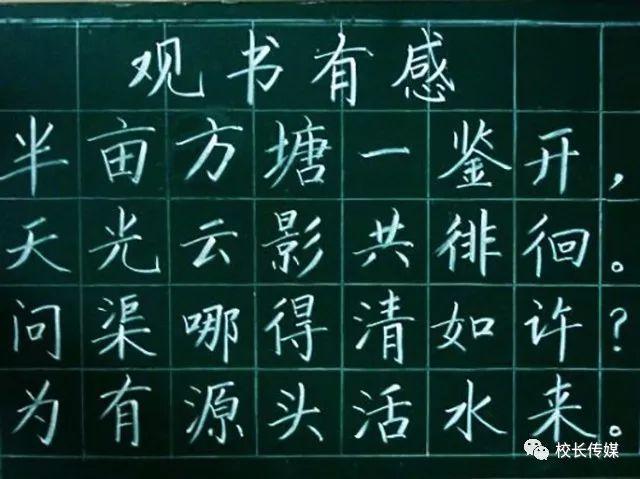 观书有感
半亩方塘一鉴开，
天光云影共徘徊。
问渠哪得清如许？
为有源头活水来。
校长传媒